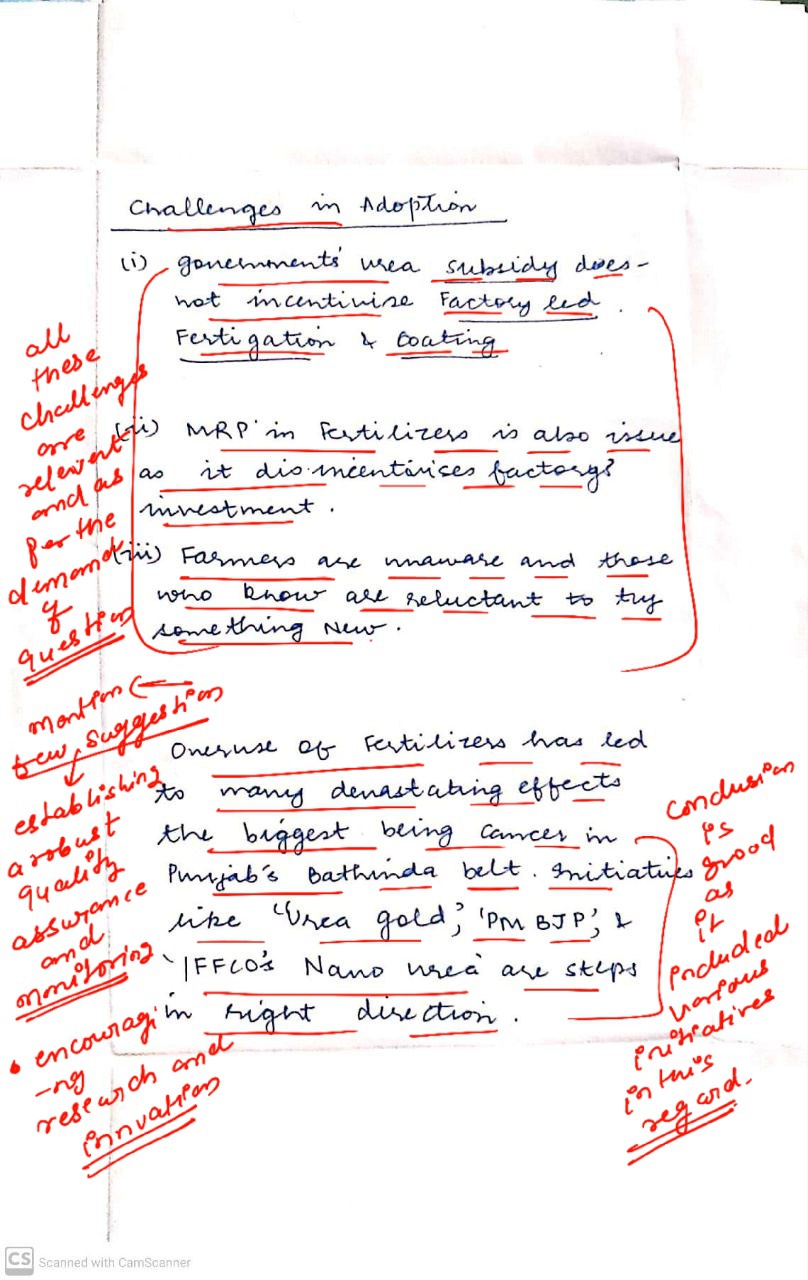 Challenges in Adoption
(i) governments' urea subsidy does-
not incentivise Factory led
Fertigation & Coating
(ii) MRP in Fertilizers is also issue
as it dis-incentivises factory's
investment.
(iii) Farmers are unaware and those
who know are reluctant to try
something New.
Overuse of Fertilizers has led
to many devastating effects
the biggest being cancer in
Punjab's Bathinda belt. Initiatives
like 'Urea gold', 'PM BJP', &
'IFFCO's Nano urea' are steps
in right direction.
all
these
challenges
are
relevent
and as
per the
demand
of
question
mention
few suggestion
establishing
a robust
quality
assurance
and
monitoring
• encouragi
-ng
research and
innvation
conclusion
is
good
as
it
included
various
initiatives
in this
regard.
CS Scanned with CamScanner